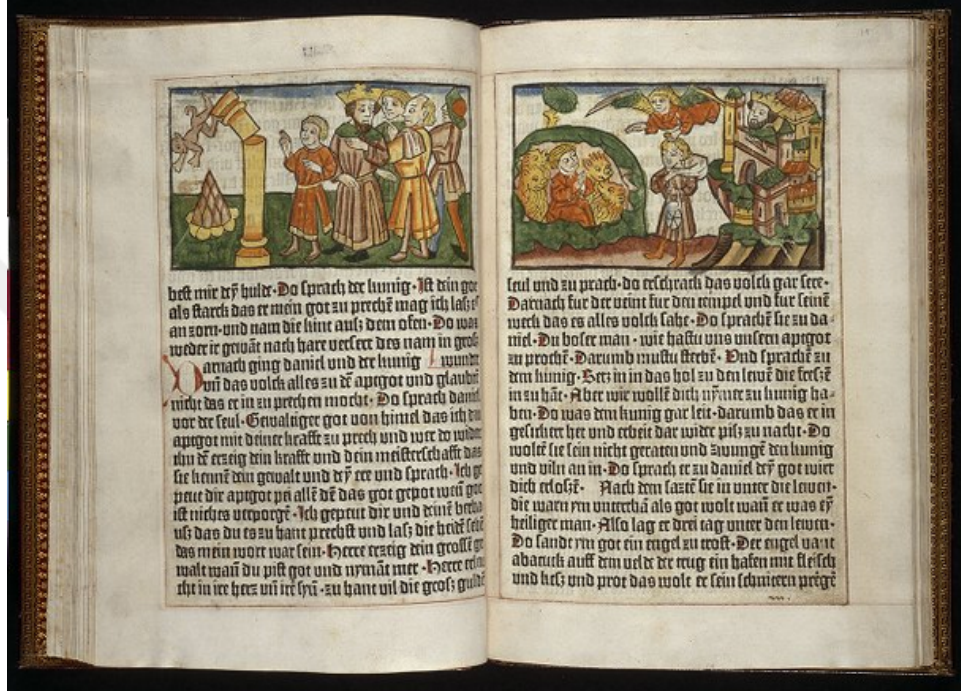 best mir deÿ hulde · Do sprach der kunig · Ist dein got
als starck das er mein got zu prechē mag ich lasz
an zorn · vnd nam die kint ausz dem ofen · Do was
weder ir gewāt nach hare verseert des nam in gros
Darnach ging daniel vnd der kunig wundr
vnd das volck alles zu dē aptgot vnd glaubtē
nicht das er in zu prechen mocht · Do sprach daniel
vor der seul · Gewaltiger got von himel das ich dē
aptgot mit deiner krafft zu prech vnd wer do wider
thu dē erzeig dein krafft vnd dein meisterschafft das
sie kennē dein gewalt vnd deÿ eer vnd sprach · Ich ge
peut dir aptgot pei allē dē das got gepot wen̄ got
ist nichts verporgē · Ich gepeut dir vnd deinē
usz das du es zu hant prechst vnd lasz die heidē sehē
das mein wort war sein · Herre erzeig dein grossē ge
walt wan̄ du pist got vnd nymāt mer · Herre
cht in ire herz vn̄ ire syn̄ · zu hant vil die grosz guldē
seul vnd zu prach · do erschrack das volck gar sere ·
Darnach fur der veint fur den tempel vnd fur seinē
weck das es alles volck sahe · Do sprachē sie zu da⸗
niel · Du boser man · wie hastu vns vnsern aptgot
zu prochē · Darumb mustu sterbē · Vnd sprachē zu
dem kunig · Secz in in das hol zu den lewē die fressē
in zu hāt · Aber wir wollē dich nÿmer zu kunig ha⸗
ben · Do was dem kunig gar leit · darumb das er in
gesichert het vnd erbeit dar wider pisz zu nacht · Do
woltē sie sein nicht geraten vnd zwungē den kunig
vnd viln an in · Do sprach er zu daniel deÿ got wirt
dich erlosē · Nach dem saztē sie in vnter die lewen ·
die warn ym vntertbā als got wolt wan̄ er was eÿ
heiliger man · Also lag er drei tag vnter den lewen ·
Do sandt ym got ein engel zu trost · Der engel vant
abacuck auff dem velde der trug ein hafen mit fleisch
vnd kesz vnd prot das wolt er sein schnitern prēgē